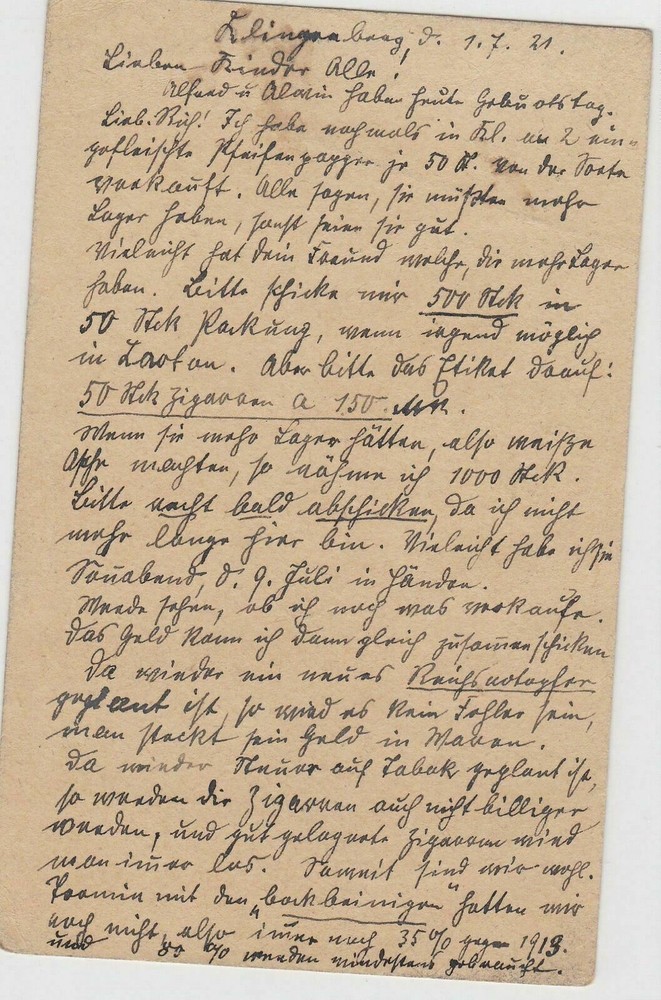 Klingenberg, d. 1.7.21.
Lieben Kinder Alle!
Alfred u Alwin haben heute Geburtstag.
Lieb. Rich! Ich habe nochmals in Kl. an 2 ein-
gefleischte Pfeifenpapper je 50 St. von der Sorte
verkauft. Alle sagen, sie müßten mehr
Lager haben, sonst seien sie gut.
Vielleicht hat dein Freund welche, die mehr Lager
haben. Bitte schicke mir 500 Stck in
50 Stck Packung, wenn irgend möglich
in Karton. Aber bitte das Etiket drauf:
50 Stck Zigarren a 150 Mk.
Wenn sie mehr Lager hätten, also weiße
Asche machten, so nähme ich 1000 Stck.
Bitte recht bald abschicken, da ich nicht
mehr lange hier bin. Vieleicht habe ich sie
Sonnabend, d. 9. Juli in Händen.
Werde sehen, ob ich noch was verkaufe.
Das Geld kann ich dann gleich zusammen schicken
Da wieder ein neues Reichsnotopfer
geplant ist, so wird es kein Fehler sein,
man steckt sein Geld in Waren.
Da wieder Steuer auf Tabak geplant ist,
so werden die Zigarren auch nicht billiger
werden, und gut gelagerte Zigarren wird
man immer los. Soweit sind wir wohl.
Termin mit den "bockbeinigen" hatten wir
noch nicht, also immer noch 35% gegen 1913.
und 50 % werden mindestens gebraucht.